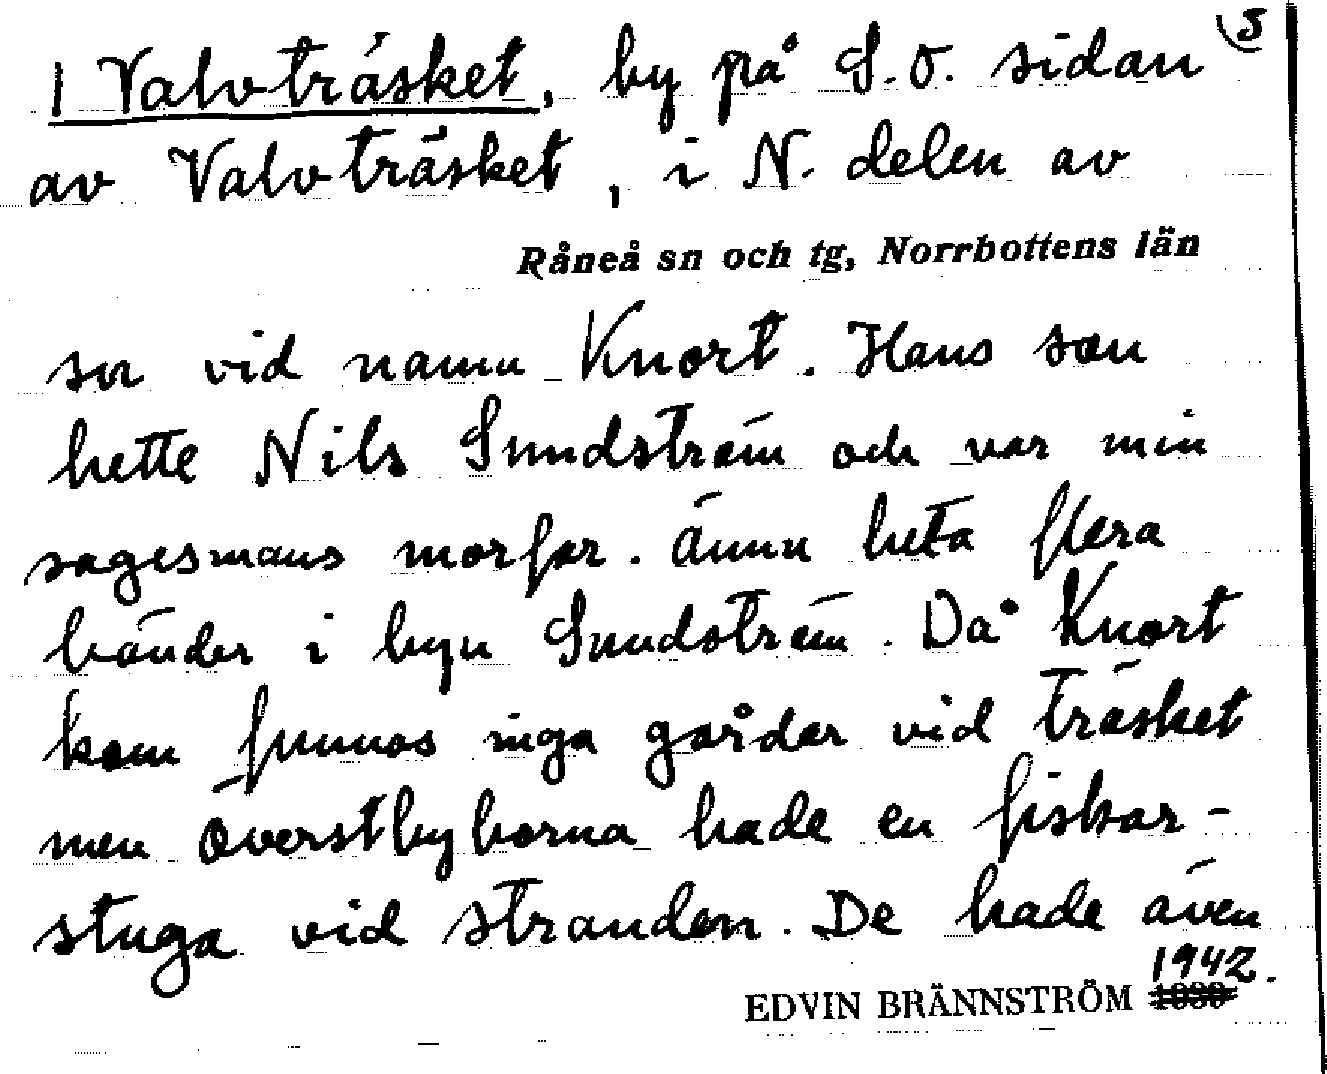 5
1 Valvträsket, by på S.O. sidan
av Valvträsket, i N. delen av
Råneå sn och tg, Norrbottens län
sv vid namn Knort. Hans son
hette Nils Sundström och var min
sagesmans morfar. Ännu heta flera
bönder i byn Sundström. Då Knort
kom funnos inga gårdar vid träsket
men överstbyborna hade en fiskar-
stuga vid stranden. De hade även
1942.
EDVIN BRÄNNSTRÖM 1939